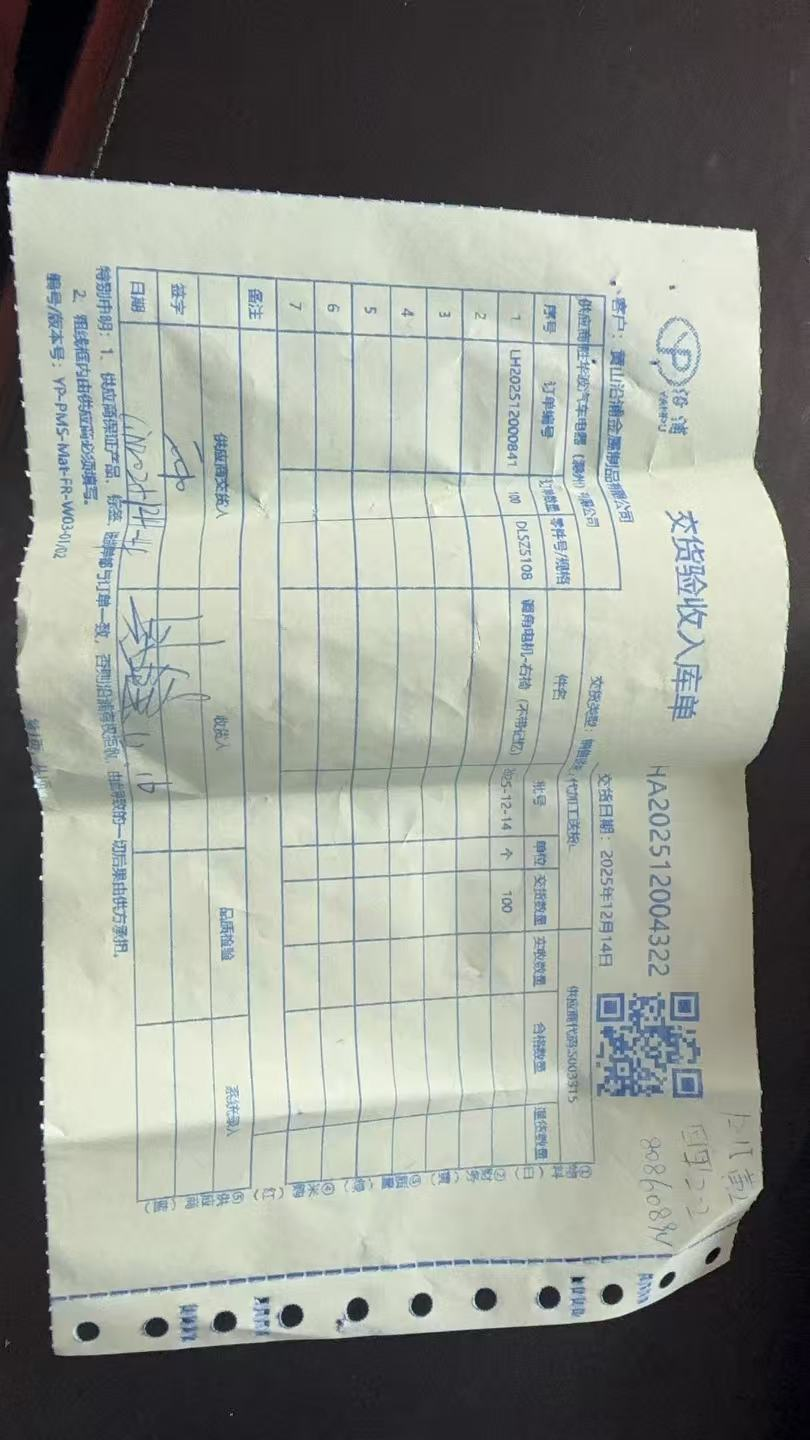 沿浦
YANPU
交货验收入库单
HA202512004322
客户：黄山沿浦金属制品有限公司
交货类型：
交货日期：2025年12月14日
供应商：胜华波汽车电器（滁州）有限公司
代加工送货
供应商代码S003315
序号 订单编号 订单数量 零件号/规格 件名 批号 单位 交货数量 实收数量 合格数量 退货数量
1 LH202512000841 100 DLSZ5108 调角电机-右椅（不带记忆） 2025-12-14 个 100
2
3
4
5
6
7
备注
供应商交货人 收货人 品质检验 系统录入
签字
日期
特别申明：1、供应商保证产品、标签、 与订单一致，否则沿浦有权拒收，由此导致的一切后果由供方承担。
2、粗线框内由供应商必须填写。
编号/版本号：YP-PMS-Mat-FR-W03-01/02
①物料（白） ②财务（黄） ③质量 ④采购（红） ⑤供应商（蓝）